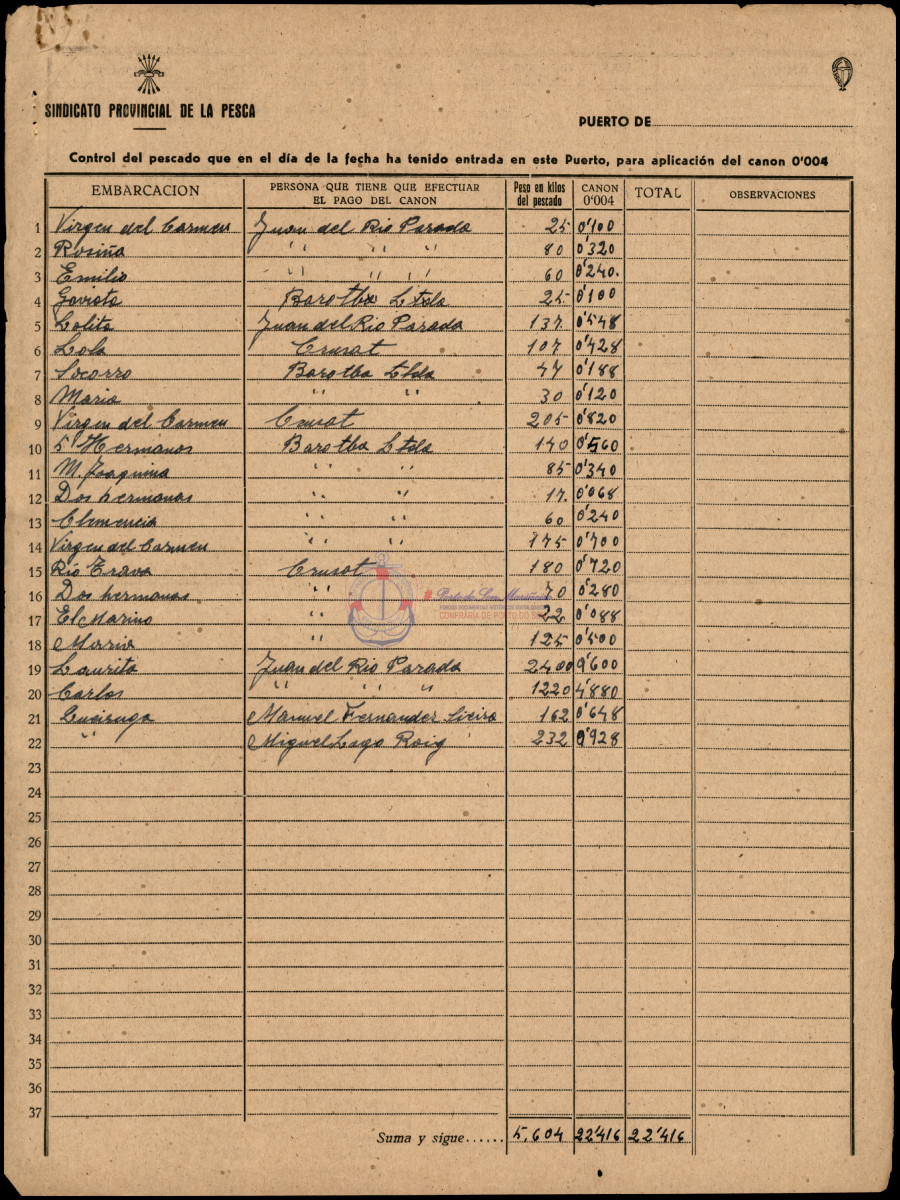 SINDICATO PROVINCIAL DE LA PESCA
PUERTO DE
Control del pescado que en el día de la fecha ha tenido entrada en este Puerto, para aplicación del canon 0'004
EMBARCACION PERSONA QUE TIENE QUE EFECTUAR EL PAGO DEL CANON Peso en kilos del pescado CANON 0'004 TOTAL OBSERVACIONES
1 Virgen del Carmen Juan del Rio Parada 25 0'100
2 Rosiña " " " 80 0'320
3 Emilio " " " 60 0'240.
4 Gaviota Barotba Ltda 25 0'100
5 Lolita Juan del Rio Parada 137 0'548
6 Lola Crusat 107 0'428
7 Socorro Barotba Ltda 47 0'188
8 Maria " " 30 0'120
9 Virgen del Carmen Crusat 205 0'820
10 5 Hermanos Barotba Ltda 140 0'560
11 M. Joaquina " " 85 0'340
12 Dos hermanas " " 17 0'068
13 Clemencia " " 60 0'240
14 Virgen del Carmen " " 175 0'700
15 Rio Trava Crusat 180 0'720
16 Dos hermanas " 70 0'280
17 El Marino " 22 0'088
18 Maria " 125 0'500
19 Laurita Juan del Rio Parada 2400 9'600
20 Carlos " " " 1220 4'880
21 Manuel Fernandez Sieira 162 0'648
22 " Miguel Lago Roig 232 0'928
23
24
25
26
27
28
29
30
31
32
33
34
35
36
37
Suma y sigue...... 5.604 22'416 22'416
CONFRARÍA DE PORTO DO SON